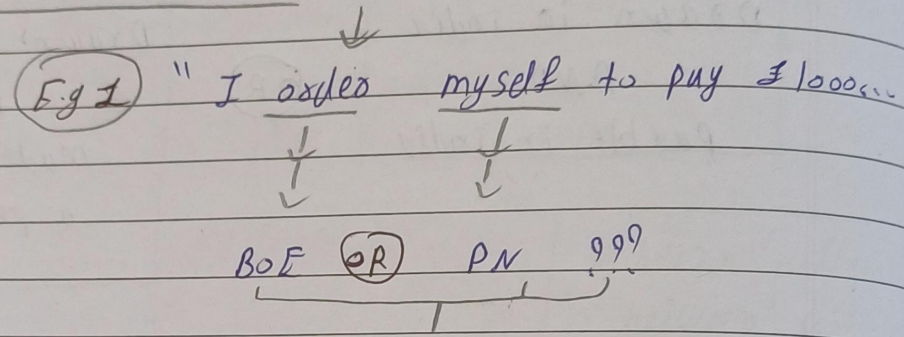 E.g 1 " I order myself to pay £1000...
BOE OR PN ???